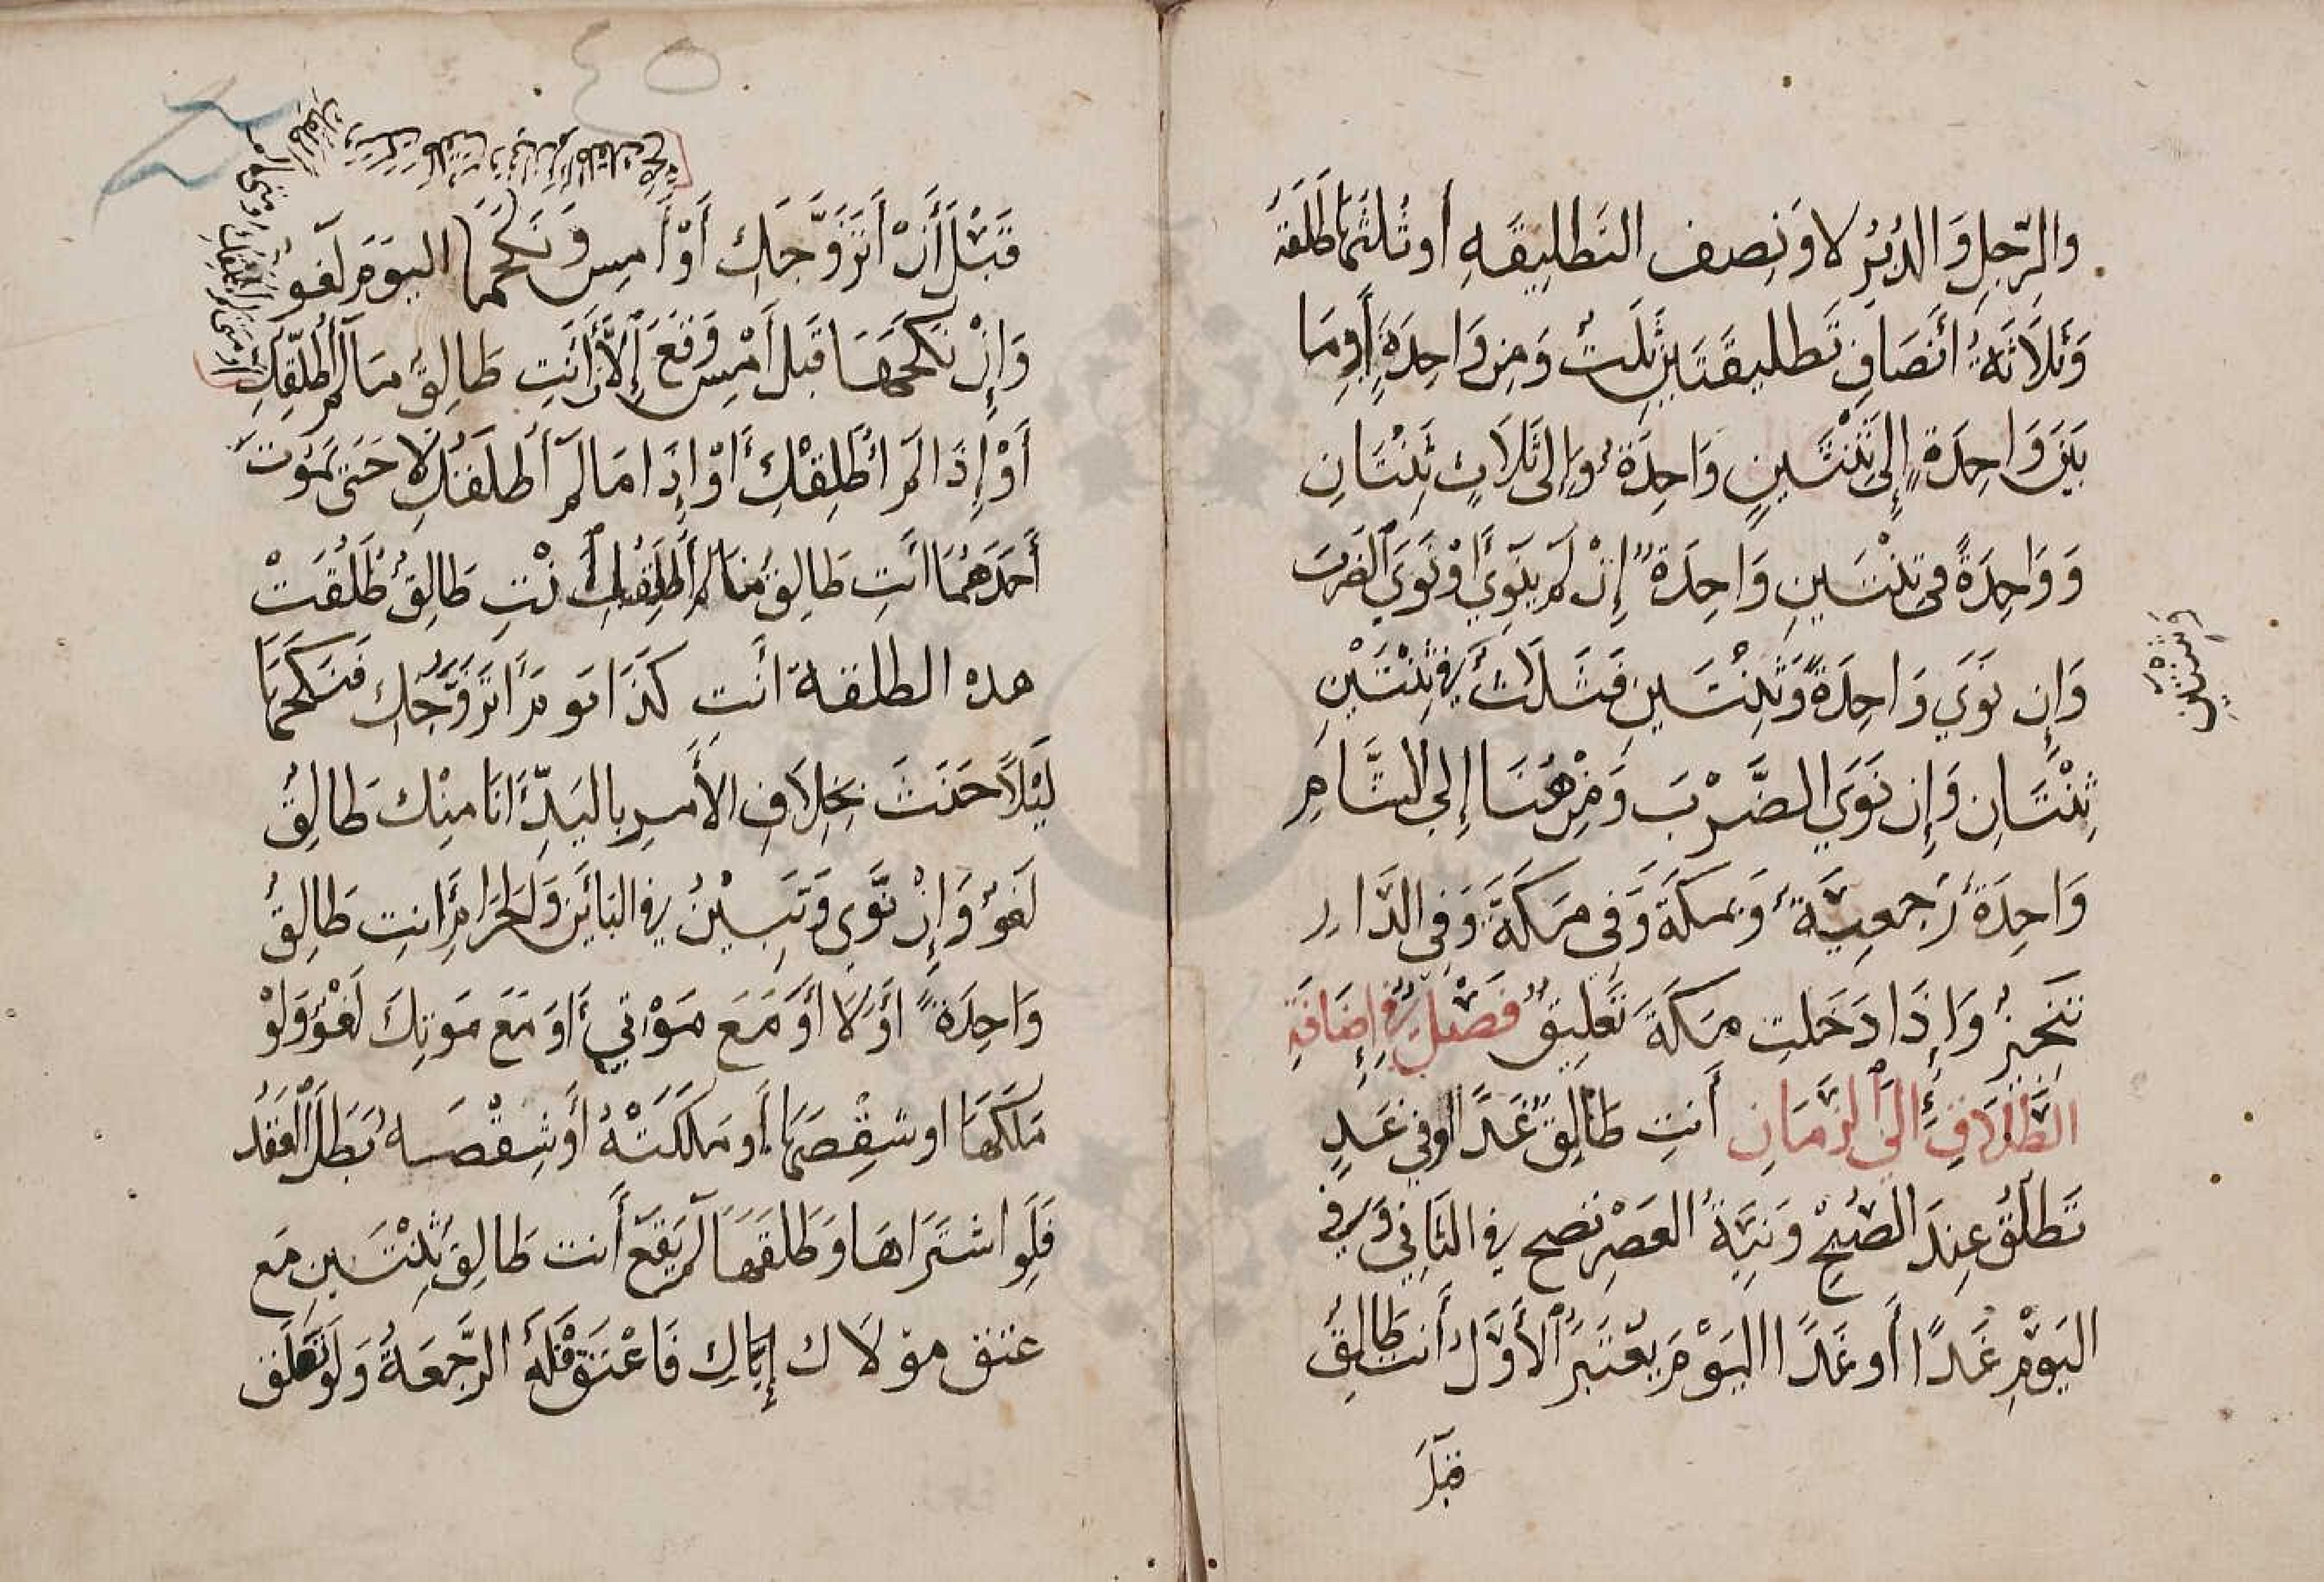 والرِّجلِ وَالدُّبُرِ لا وَنِصف التطلِيقَةِ أو ثُلثُها طَلقَة
وَثلَاثَةُ أنصَافِ تَطليقَتَينِ ثَلَثٌ وَمِن وَاحِدَةٍ أَومَا
بَيَنَ وَاحِدَةٍ إِلَى ثِنْتَينِ وَاحِدَةٌ وإلى ثَلاَثٍ ثِنْتَانِ
وَوَاحِدَةً في ثِنْتَينِ وَاحِدَةٌ إِنْ لَم يَنوِيَ أَوْ نَوَى الضَربَ
وَإِن نَوَي وَاحِدَةً وَثِنْتَينِ فَثَلاَثٌ في ثِنْتَيْنِ
وَثنتين
ثِنْتَانِ وَإِن نَوَي الضَّرْبَ وَمِنْ هُنَا إِلي الشَّامِ
وَاحِدَةٌ رَجعِيَّةٌ وَبمكَةَ وَفي مَكَةَ وَفِي الدَّارِ
تَنجيزٌ وَإِذَا دَخَلتِ مَكَةَ تَعلِيقٌ فَصْلٌ في إِضَافَةِ
الطَّلَاقِ إِلَى الزَّمَانِ أَنتِ طَالِقٌ غَدًا أوفي غَدٍ
تَطلُقُ عِندَ الصُّبْحِ وَنِيَّةُ العَصْرِ تصح في الثَانِي وَفي
اليَوْمِ غَدًا أَو غَدًا اليَوْمَ يعْتَبَرُ الأَوَّلُ أنتِ طَالِقٌ
قبلَ
٤٥
قَبْلَ أَنْ أَتَزَوَّجَكِ أَوْ أَمِسِ وَنَكحَهَا اليوَمَ لَغوٌ
وَإِنْ نَكحَهَا قَبلَ أَمْسِ وَقَعَ الآنَ أَنتِ طَالِقٌ مَا لَم أُطَلِّقكِ
أَوْ إِذَا لَم أُطَلِقْكِ أَوْ إِذَا مَا لَم أُطَلقكِ لاَ حَتى يَمُوتَ
أَحَدُهمَا أنتِ طَالِقٌ مَا لَم أُطَلِقكِ أَنْتِ طَالِقٌ طَلُقَتْ
هذه الطلقة أنتِ كَذَا يومَ أَتَزَوَّجُكِ فَنَكَحَهَا
لَيْلاً حَنَثَ بِخِلاَفِ الأَمرِ باليَدِ أَنَا مِنْك طَالِقٌ
لَغوٌ وَإِنْ نَّوَى وَتَبِيْنُ في البَائَنِ وَالحَرَامِ أَنتِ طَالِقٌ
وَاحِدَةً أَوْ لاَ أَوْ مَعَ مَوْتي أَو مَعَ مَوتِكَ لَغْوٌ وَلَوْ
مَلَكَهَا او شِقْصَهَا أو مَلَكَتْهُ أَو شِقْصَه بَطَلَ العَقدُ
فَلَو اشتَرَاهَا وَطَلقَهَا لَم يَقَع أَنت طَالِقٌ ثِنْتَينِ مَع
عتق موْلَاك إِيَّاكِ فَاعْتَقَ فَلَهُ الرَّجعَةُ وَلَو تَعَلَق